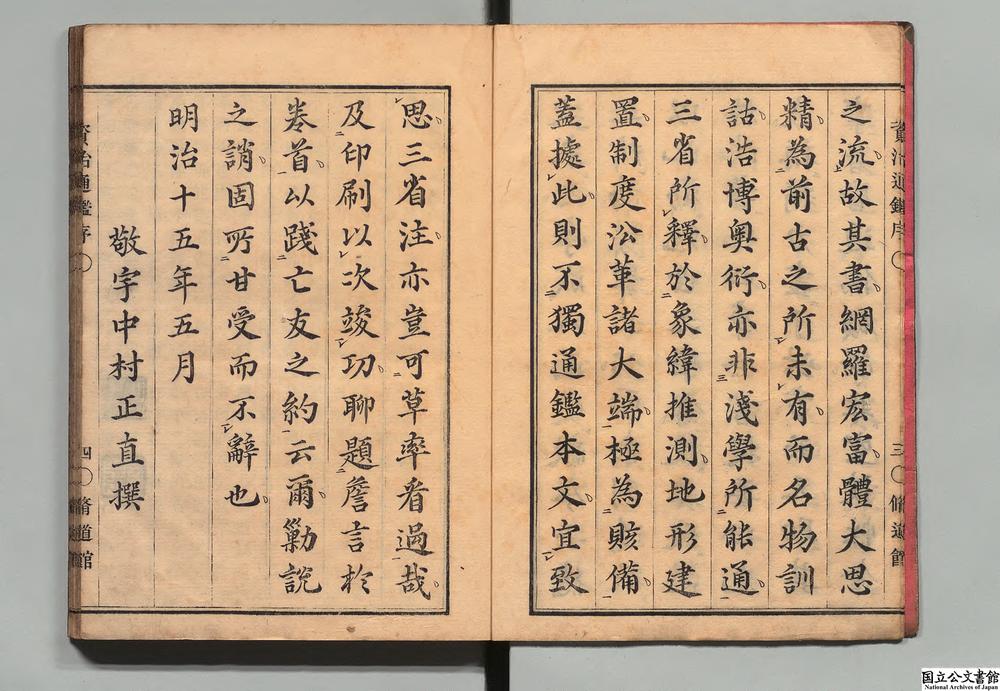 之流故其書網羅宏富體大思
精為前古之所未有而名物訓
詁浩博奧衍亦非淺學所能通
三省所釋於象緯推測地形建
置制度沿革諸大端極為賅備
蓋據此則不獨通鑑本文宜致
思三省注亦豈可草率看過哉
及印刷以次竣功聊題詹言於
卷首以踐亡友之約云爾勦說
之誚固所甘受而不辭也
明治十五年五月
敬宇中村正直撰
資治通鑑序
三
脩道館
資治通鑑序
四
脩道館
国立公文書館
National Archives of Japan